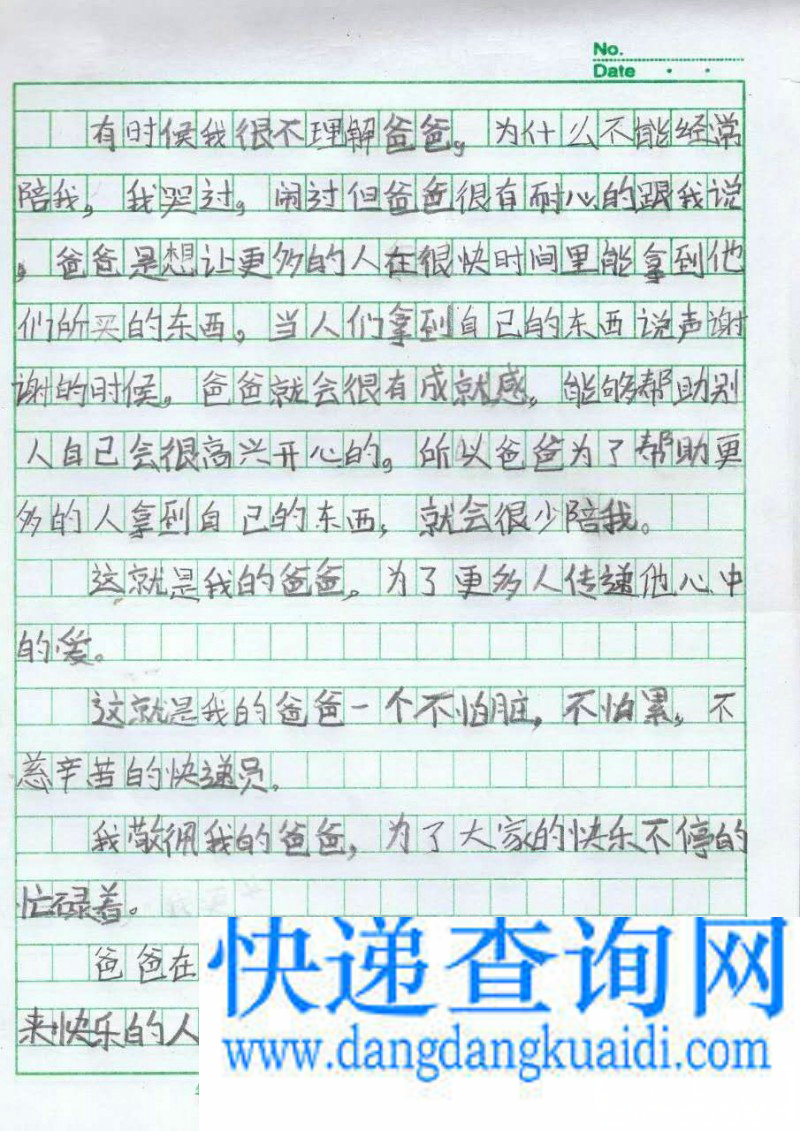 No.
Date
有时候我很不理解爸爸，为什么不能经常
陪我，我哭过，闹过但爸爸很有耐心的跟我说
，爸爸是想让更多的人在很快时间里能拿到他
们所买的东西，当人们拿到自己的东西说声谢
谢的时候，爸爸就会很有成就感，能够帮助别
人自己会很高兴开心的，所以爸爸为了帮助更
多的人拿到自己的东西，就会很少陪我。
这就是我的爸爸，为了更多人传递他心中
的爱。
这就是我的爸爸一个不怕脏，不怕累，不
慈辛苦的快递员。
我敬佩我的爸爸，为了大家的快乐不停的
忙碌着。
爸爸在
来快乐的人
快递查询网
www.dangdangkuaidi.com